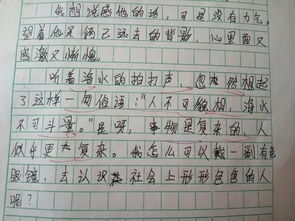 我想说感他的话，可是没有力气，
望着他深的已远去的背影，心里面又
感激又惭愧。
听着海水的拍打声，忽然想起
了这样一句俗语："人不可貌相，海水
不可斗量。"是呀，事物是复杂的，人
似乎更为复杂。我怎么可以戴一副有色
眼镜，去认识社会上形形色色的人
呢？